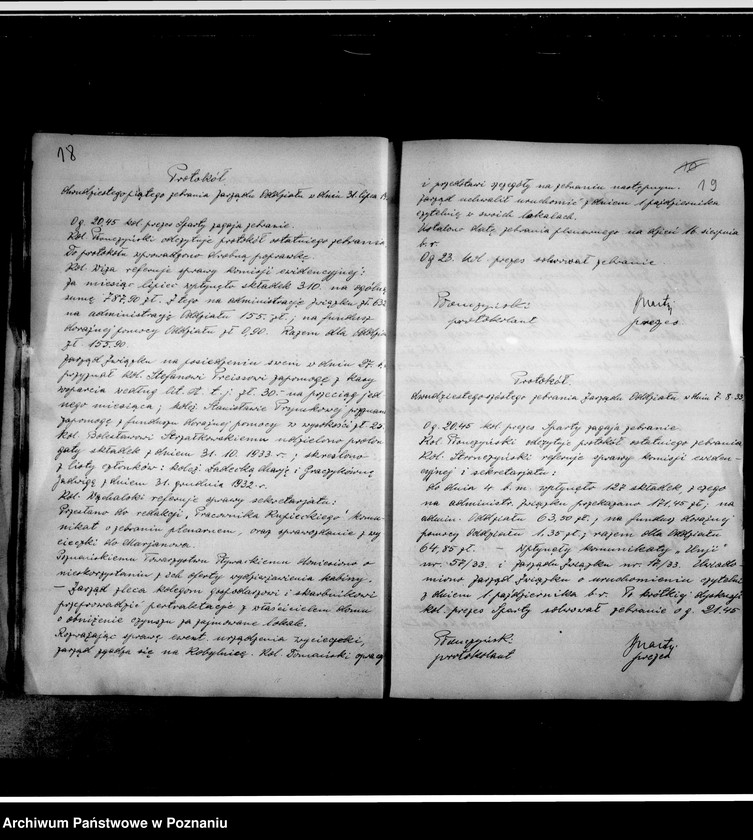 18
Protokół
dwudziestego piątego zebrania Zarządu Oddziału w dniu 31. lipca
O g. 20,45 kol. prezes Sparty zagaja zebranie.
Kol. Tomczyński odczytuje protokół ostatniego zebrania
Do protokołu wprowadzono drobną poprawkę.
Kol. Wiza referuje sprawy komisji ewidencyjnej:
Za miesiąc lipiec wpłynęło składek 310. na ogólną
sumę 787,90 zł. Z tego na administrację Związku zł. 632
na administrację Oddziału 155. zł.; na fundusz
doraźnej pomocy Oddziału zł 0,90. Razem dla Oddziału
zł. 155,90.
Zarząd Związku na posiedzeniu swem w dniu 27.
przyznał kol. Stefanowi Preissowi zapomogę z kasy
wsparcia według lit. A. t. j. zł. 30.- na przeciąg jed-
nego miesiąca; koleż. Stanisławie przyznano
zapomogę z funduszu doraźnej pomocy w wysokości zł 25.
kol. Bolesławowi udzielono prolon-
gaty składek z dniem 31. 10. 1933 r.; skreślono
z listy członków: koleż. Zadecką Marję i
Jadwigę z dniem 31. grudnia 1932 r.
Kol. Wychalski referuje sprawy sekretarjatu:
Przesłano do redakcji „Pracownika Kupieckiego" komu-
nikat o zebraniu plenarnem, oraz sprawozdanie z wy-
cieczki do Marjanowa.
Poznańskiemu Towarzystwu Pływackiemu doniesiono o
nieskorzystaniu z ich oferty wydzierżawienia kabiny.
— Zarząd zleca kolegom gospodarzowi i skarbnikowi
przeprowadzić pertraktacje z właścicielem domu
o obniżenie czynszu za zajmowane lokale.
Rozważając sprawę ewent. urządzenia wycieczki,
zarząd zgadza się na Kobylnicę. Kol. Tomański
19
i przedstawi szczegóły na zebraniu następnym.
Zarząd uchwalił uruchomić z dniem 1 października
czytelnię w swoich lokalach.
Ustalono datę zebrania plenarnego na dzień 16 sierpnia
b.r.
O g 23. kol. prezes solwował zebranie
Tomczyński
protokolant
Sparty
prezes
Protokół.
dwudziestego szóstego zebrania Zarządu Oddziału w dniu 7. 8. 33.
O g. 20,45 kol. prezes Sparty zagaja zebranie.
Kol. Tomczyński odczytuje protokół ostatniego zebrania
Kol. referuje sprawy komisji ewiden-
cyjnej i sekretarjatu:
do dnia 4 b.m. wpłynęło 127 składek, z czego
na administr. Związku przekazano 171,45 zł; na
admin. Oddziału 63,50 zł.; na fundusz doraźnej
pomocy Oddziału 1,35 zł; razem dla Oddziału
64,85 zł. — Wpłynęły komunikaty „Unji"
nr. 50/33. i Zarządu Związku nr. 17/33. Uwiado-
miono Zarząd Związku o uruchomieniu czytelni
z dniem 1 października b.r. Po krótkiej dyskusji
kol. prezes Sparty solwował zebranie o g. 21.45
Tomczyński
protokolant
Sparty
prezes
Archiwum Państwowe w Poznaniu